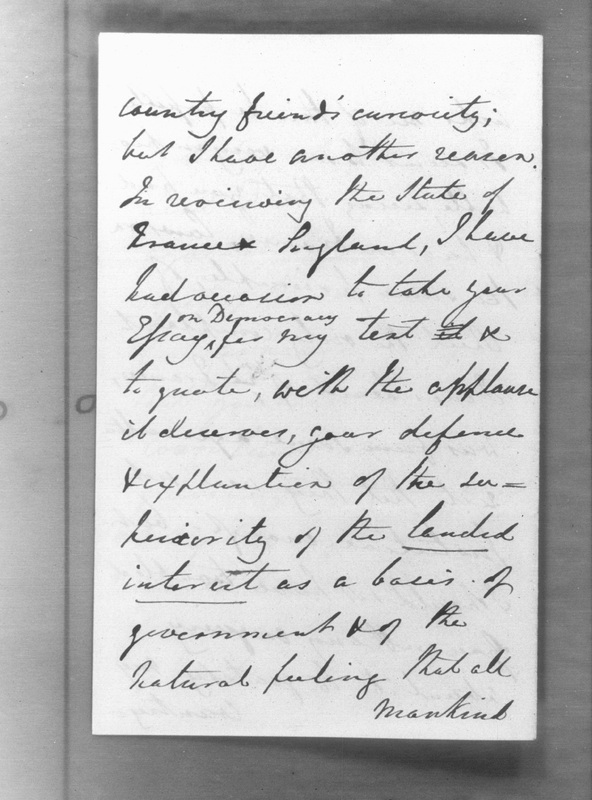 country friend's curiosity;
but I have another reason.
In reviewing the State of
France & England, I have
had occasion to take your
Essay on Democracy for my text &
to quote, with the applause
it deserves, your defence
& explanation of the su=
periority of the landed
interest as a basis of
government & of the
natural feeling that all
mankind